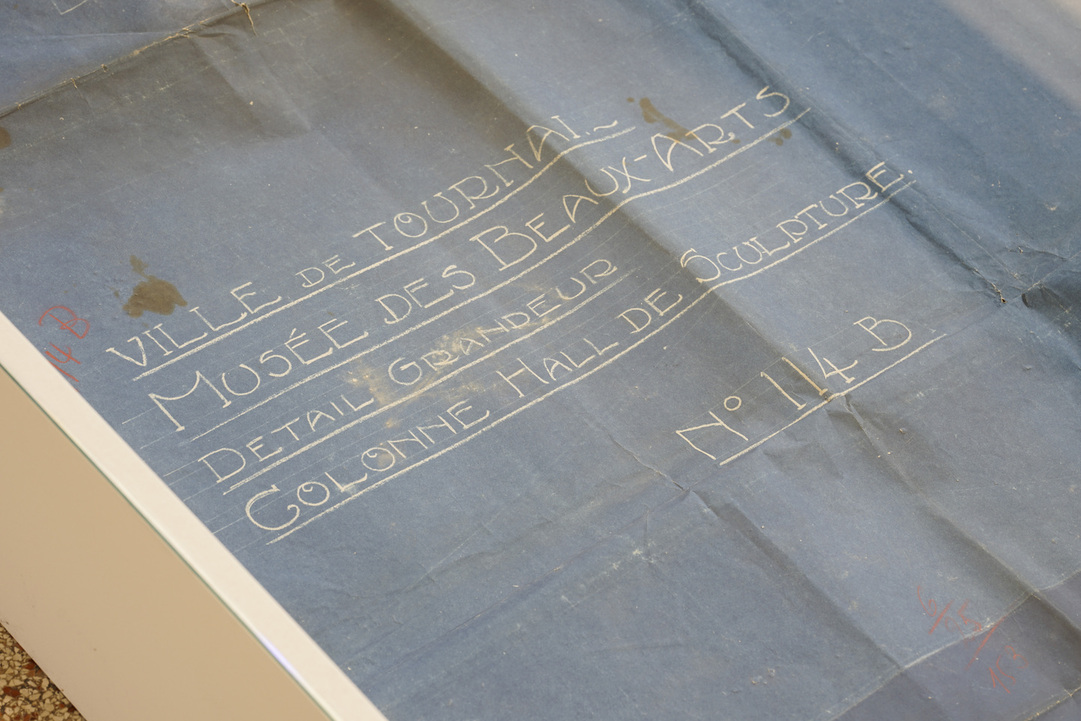 VILLE DE TOURNAI ~
MUSÉE DES BEAUX-ARTS
DETAIL GRANDEUR
COLONNE HALL DE SCULPTURE.
No 14 B
14 B